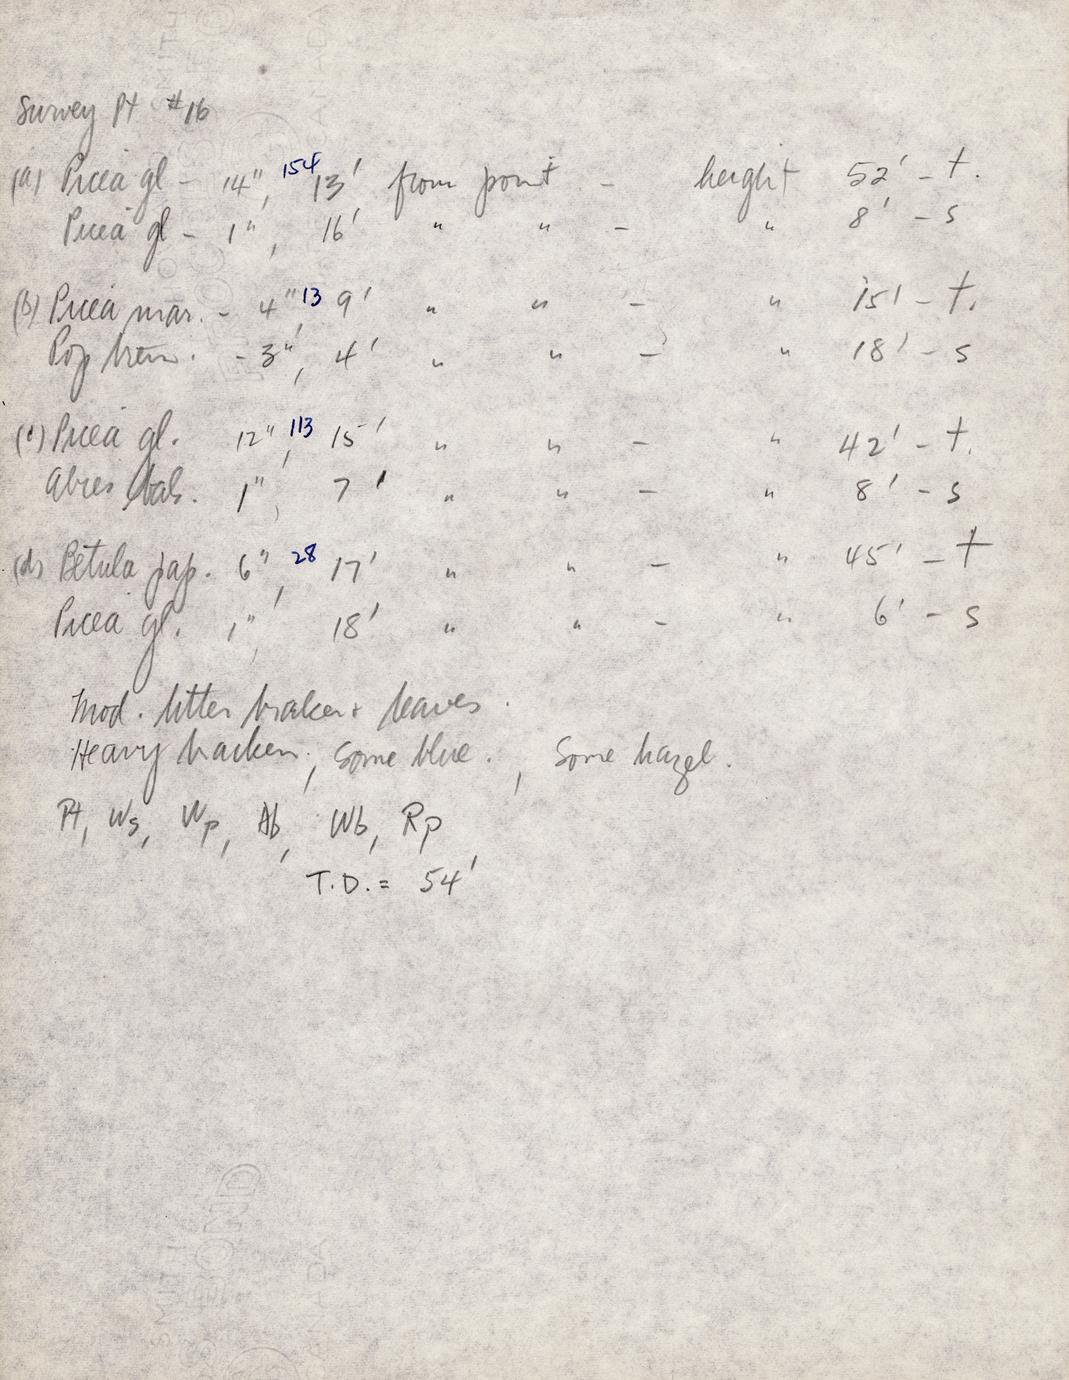 Survey Pt #16
(a) Picea gl - 14", 154 13' from point - height 52' - t.
Picea gl - 1", 16' " " - " 8' - s
(b) Picea mar. - 4", 13 9' " " - " 15' - t.
Pop trem. - 3", 4' " " - " 18' - s
(c) Picea gl. 12", 113 15' " " - " 42' - t.
Abies bals. 1", 7' " " - " 8' - s
(d) Betula pap. 6", 28 17' " " - " 45' - t
Picea gl. 1", 18' " " - " 6' - s
Mod. litter braken + leaves.
Heavy bracken, some blue., some hazel.
Pt, Ws, Wp, Ab, Wb, Rp
T.D. = 54'